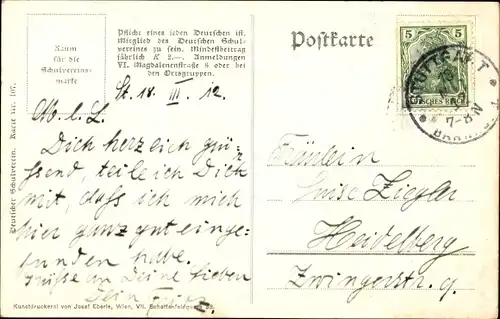 Raum
für die
Schulvereins-
marke
Pflicht eines jeden Deutschen ist
Mitglied des Deutschen Schul-
vereines zu sein. Mindestbeitrag
jährlich K 2.—. Anmeldungen
VI. Magdalenenstraße 6 oder bei
den Ortsgruppen.
Postkarte
5 5
DEUTSCHES REICH
STUTTGART
7-8 N
Deutscher Schulverein. Karte Nr. 167.
St. 18. III. 12.
M. l. L.
Dich herzlich grüs-
send, teile ich Dich
mit, dass ich mich
hier ganz gut einge-
funden habe.
Grüsse an Deine Lieben
Dein Franz.
Fräulein
Luise Ziegler
Heidelberg
Zwingerstr. 9.
Kunstdruckerei von Josef Eberle, Wien, VII. Schottenfeldgasse